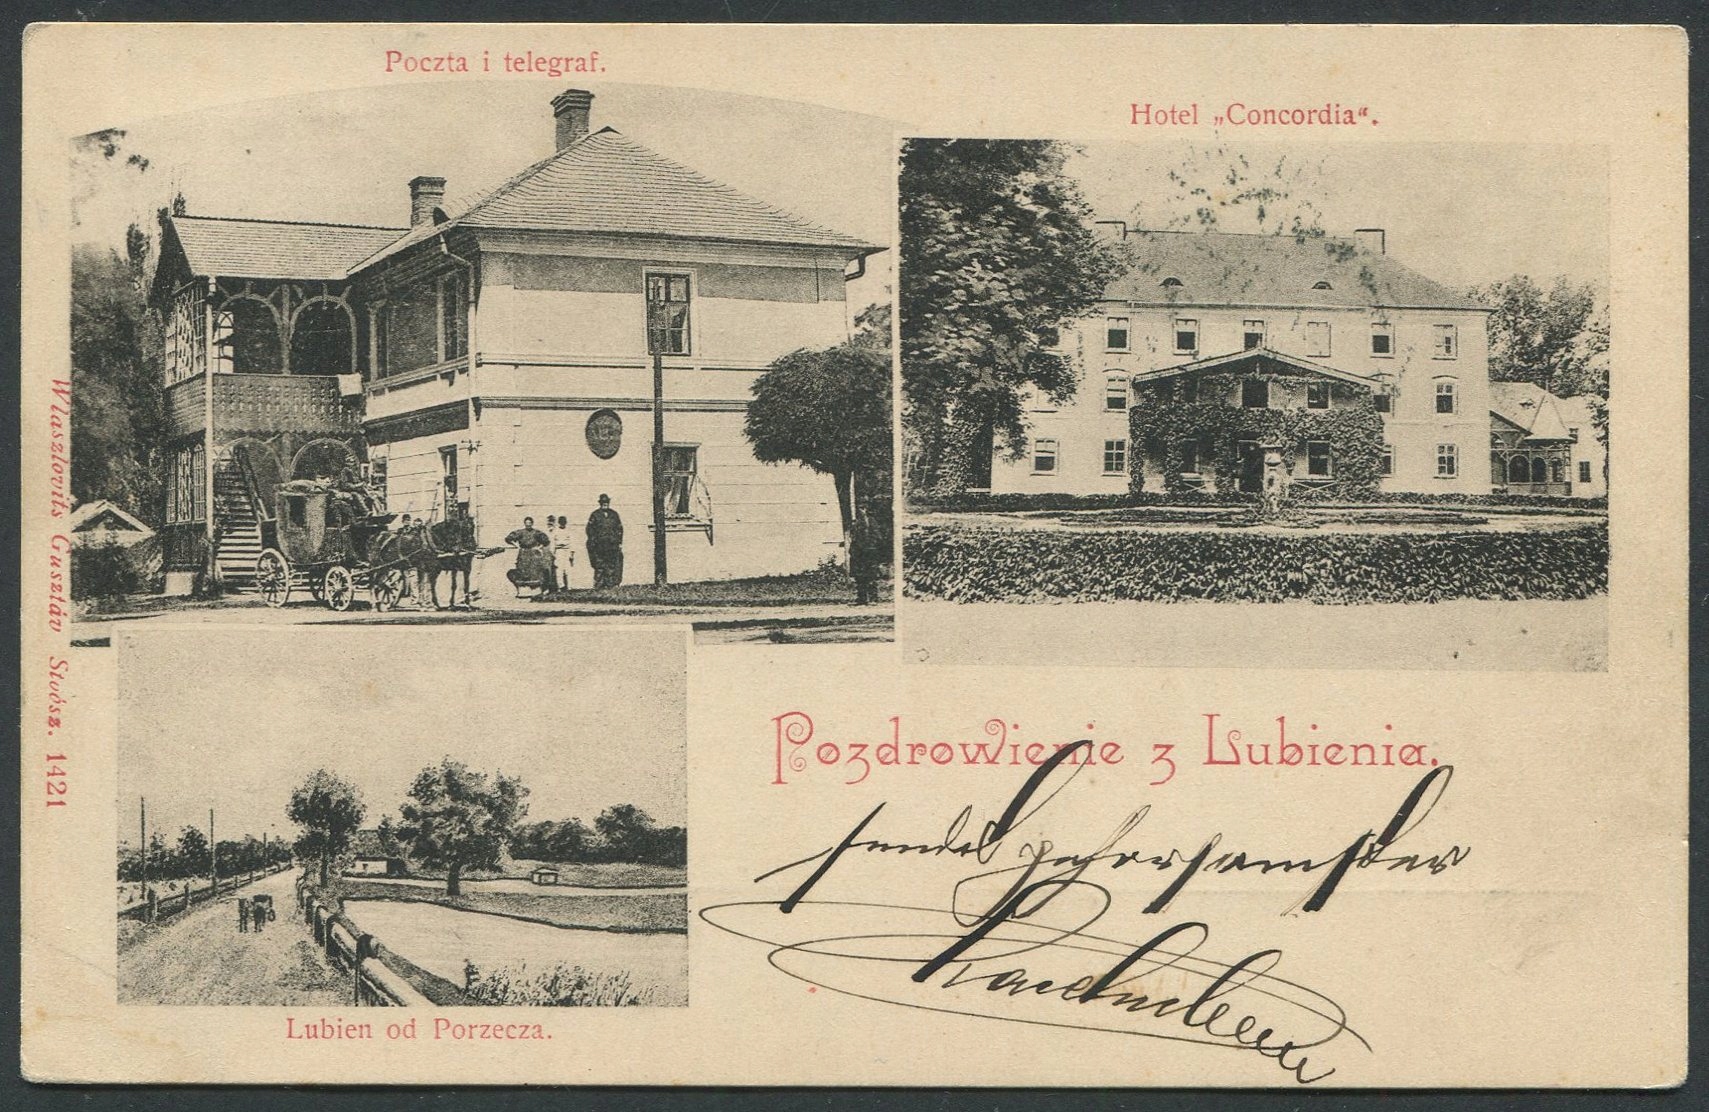 Poczta i telegraf.
Hotel „Concordia“.
Wlaszlovits Gusztáv Stoósz. 1421
Pozdrowienie z Lubienia.
sendet gehorsamster
Lubien od Porzecza.